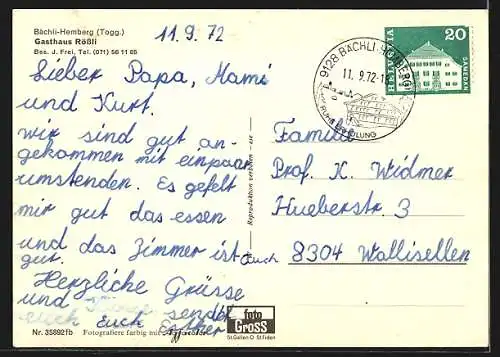 Bächli-Hemberg (Togg.)
Gasthaus Rößli
Bes. J. Frei, Tel. (071) 56 11 65
11.9.72
Lieber Papa, Mami
und Kurt.
wir sind gut an-
gekommen mit einpaar
umstenden. Es gefelt
mir gut das essen
und das Zimmer ist auch
gut.
Herzliche Grüsse
und sendet
euch Euch Esther
Nr. 35892 fb Fotografiere farbig mit
Reproduktion verboten
foto
GROSS
St. Gallen O St. Fiden
9128 BÄCHLI-HEMBERG
11.9.72-1
HELVETIA
20
SAMEDAN
Familie
Prof. K. Widmer
Hueberstr. 3
8304 Wallisellen